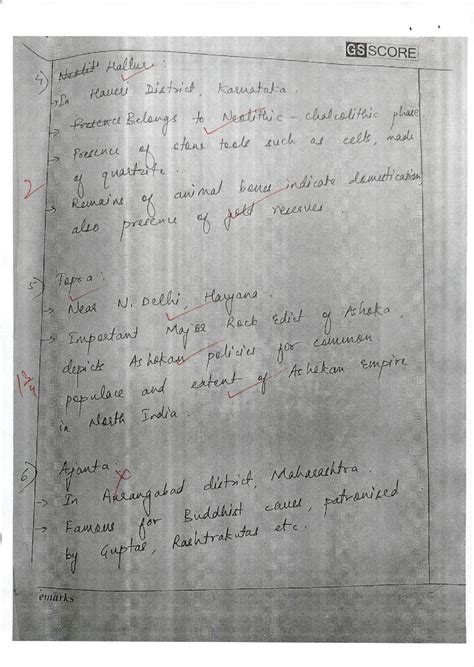 GSSCORE
4) Hallur :
→ In Haveri District, Karnataka.
→ Belongs to Neolithic - chalcolithic phase
→ Presence of stone tools such as celts, made
of quartzite.
2
→ Remains of animal bones indicate domestication,
also presence of gold reserves.
5) Topra :
→ Near N. Delhi, Haryana.
→ Important Major Rock Edict of Ashoka.
depicts Ashokan policies for common
1 3/4
populace and extent of Ashokan Empire
in North India.
6) Ajanta
→ In Aurangabad district, Maharashtra.
→ Famous for Buddhist caves, patronised
by Guptas, Rashtrakutas etc.
emarks